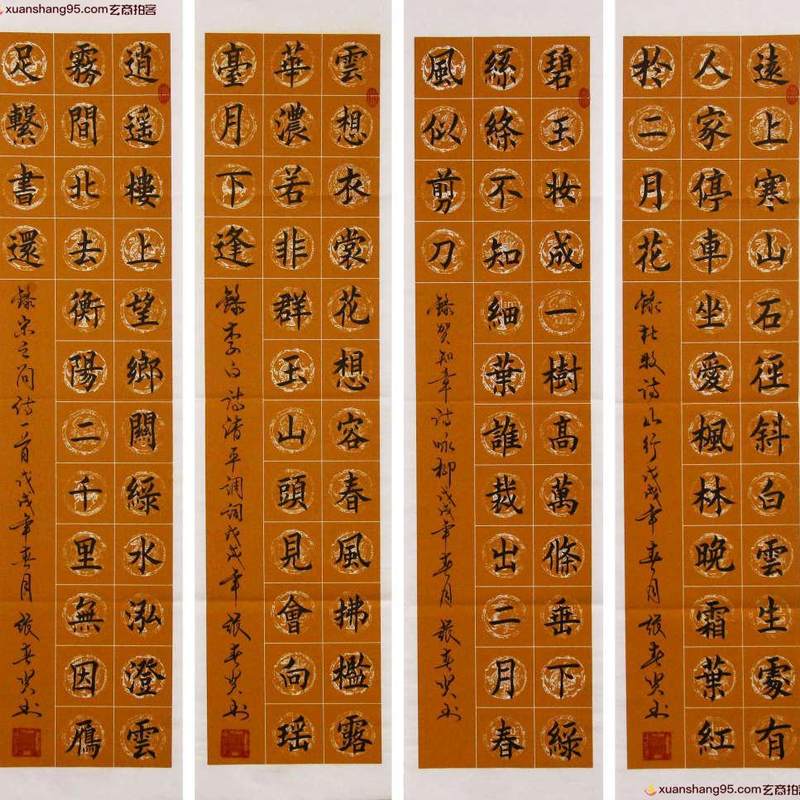 xuanshang95.com玄商拍客
遠上寒山石徑斜白雲生處有
人家停車坐愛楓林晚霜葉紅
於二月花
錄杜牧詩山行戊戌年春月 張春
碧玉妝成一樹高萬條垂下綠
絲絛不知細葉誰裁出二月春
風似剪刀
錄賀知章詩咏柳戊戌年春月 張春
雲想衣裳花想容春風拂檻露
華濃若非群玉山頭見會向瑶
臺月下逢
錄李白詩清平調詞戊戌年 張春
逍遥樓上望鄉關綠水泓澄雲
霧間北去衡陽二千里無因雁
足繫書還
錄宋之问诗一首戊戌年春月 張春
xuanshang95.com玄商拍客